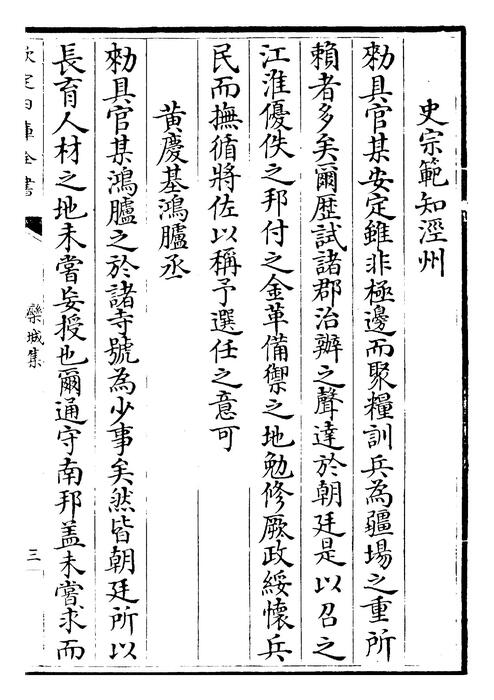 史宗範知涇州
勑具官某安定雖非極邊而聚糧訓兵為疆場之重所
賴者多矣爾歴試諸郡治辦之聲達於朝廷是以召之
江淮優佚之邦付之金革備禦之地勉修厥政綏懷兵
民而撫循將佐以稱予選任之意可
黄慶基鴻臚丞
勑具官某鴻臚之於諸寺號為少事矣然皆朝廷所以
長育人材之地未嘗妄授也爾通守南邦盖未嘗求而
欽定四庫全書
欒城集
三